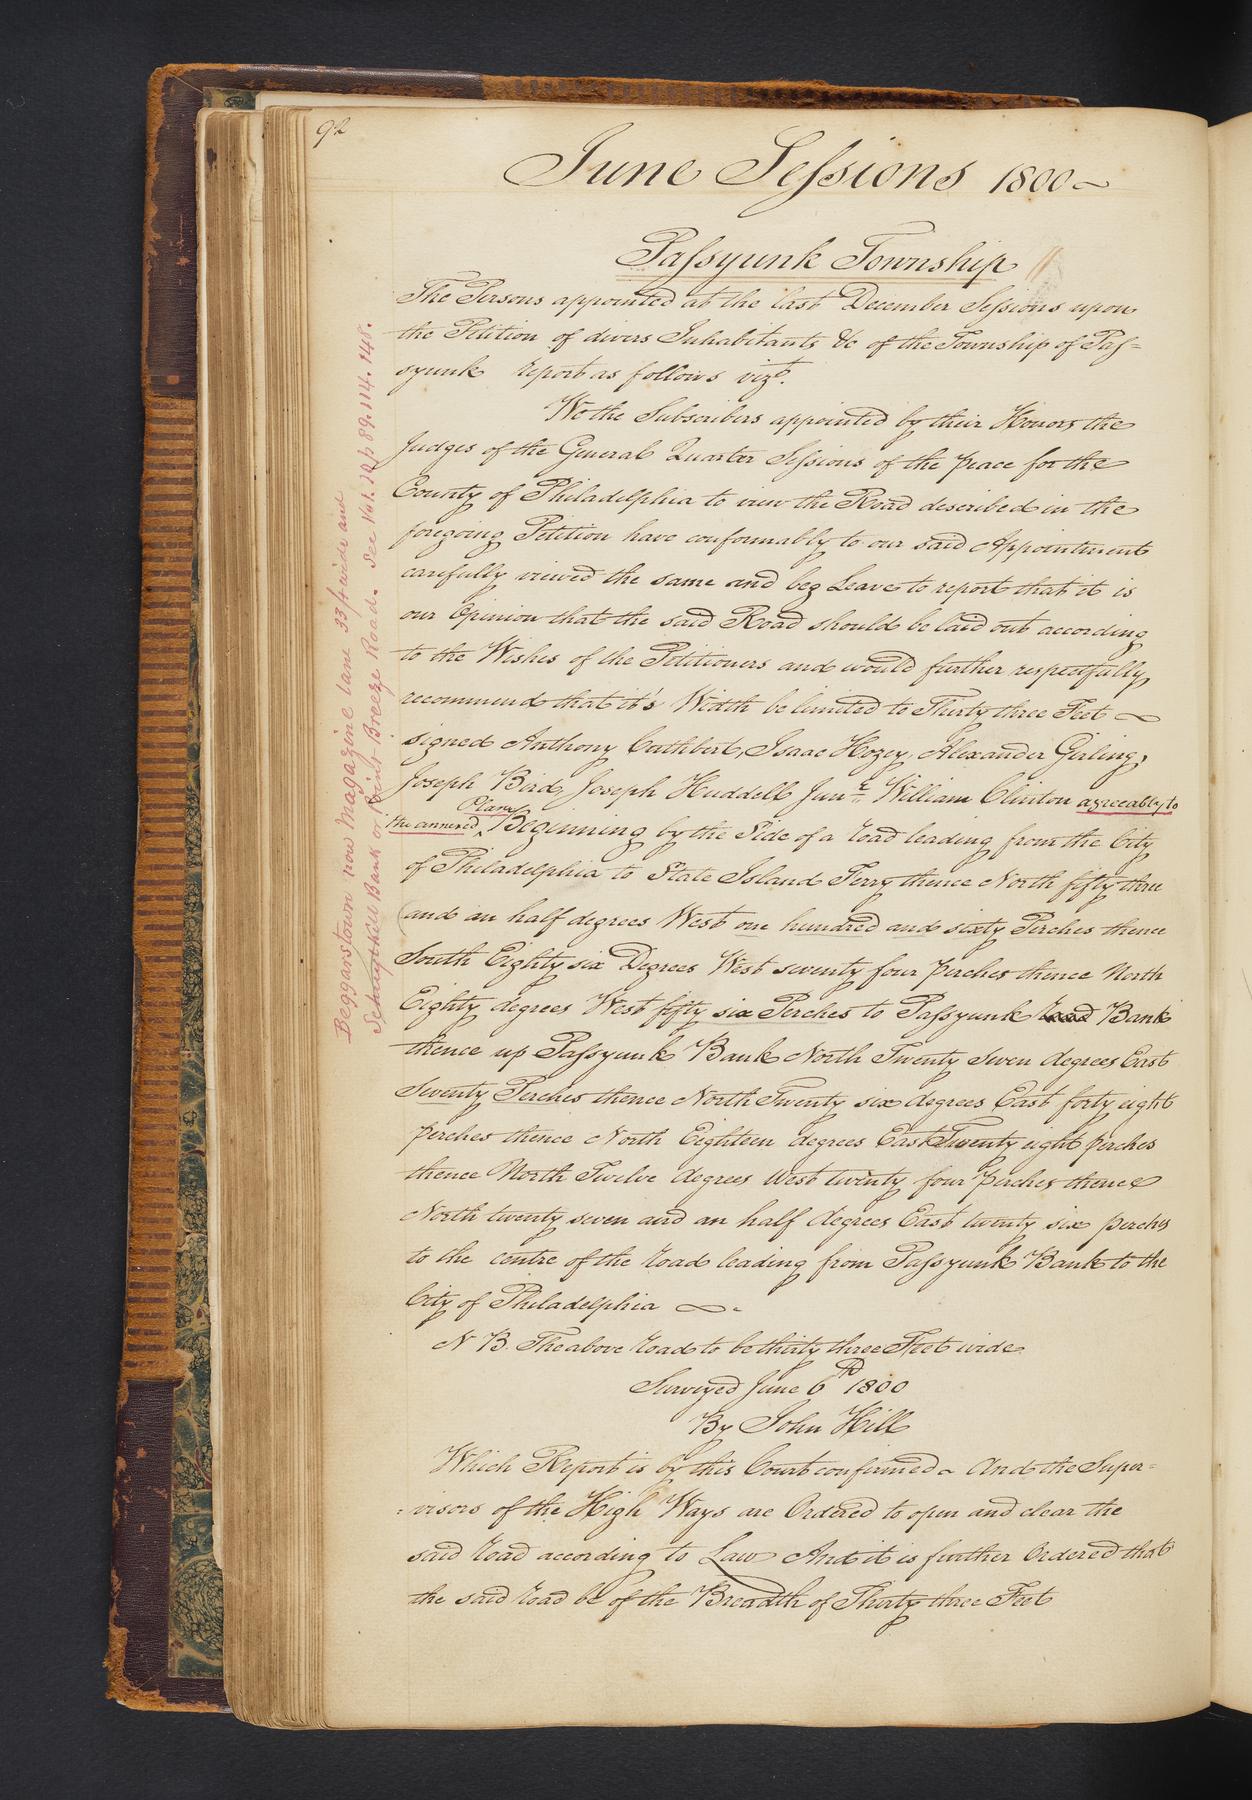 92
June Sessions 1800
Passyunk Township
The Persons appointed at the last December Sessions upon
the Petition of divers Inhabitants &c of the Township of Pas=
syunk report as follows vizt.
We the Subscribers appointed by their Honors the
Judges of the General Quarter Sessions of the peace for the
County of Philadelphia to view the Road described in the
foregoing Petition have conformably to our said Appointment
carefully viewed the same and beg Leave to report that it is
our Opinion that the said Road should be laid out according
to the Wishes of the Petitioners and would further respectfully
recommend that it's Width be limited to Thirty three Feet
signed Anthony Cuthbert, Isaac Hozey, Alexander Girling,
Joseph Bird, Joseph Huddell Junr. William Clinton agreeably to
the annexed Plan Beginning by the Side of a road leading from the City
of Philadelphia to State Island Ferry thence North fifty three
and an half degrees West one hundred and sixty Perches thence
South Eighty six Degrees West seventy four perches thence North
Eighty degrees West fifty six Perches to Passyunk Road Bank
thence up Passyunk Bank North Twenty seven degrees East
Seventy Perches thence North Twenty six degrees East forty eight
perches thence North Eighteen degrees East Twenty eight perches
thence North Twelve degrees West twenty four perches thence
North twenty seven and an half degrees East twenty six perches
to the centre of the road leading from Passyunk Bank to the
City of Philadelphia
N B. The above road to be thirty three Feet wide
Surveyed June 6th 1800
By John Hill
Which Report is by this Court confirmed And the Super=
=visors of the High Ways are Ordered to open and clear the
said road according to Law And it is further Ordered that
the said road be of the Breadth of Thirty three Feet
Beggarstown now Magazine lane 33 ft wide and
Schuylkill Bank or Point Breeze Road. See Vol. 10 p 89. 114. 148.